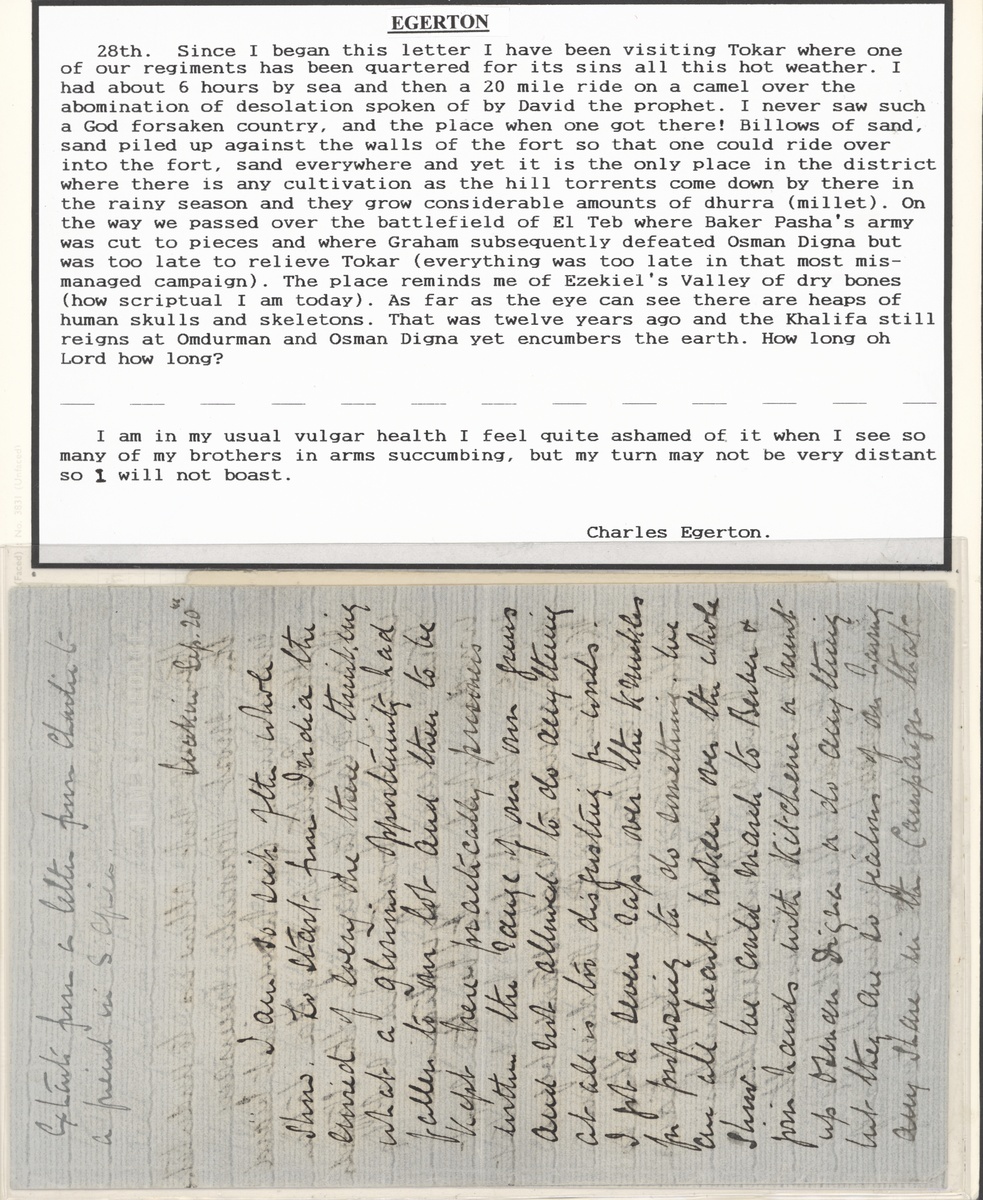 EGERTON
28th. Since I began this letter I have been visiting Tokar where one
of our regiments has been quartered for its sins all this hot weather. I
had about 6 hours by sea and then a 20 mile ride on a camel over the
abomination of desolation spoken of by David the prophet. I never saw such
a God forsaken country, and the place when one got there! Billows of sand,
sand piled up against the walls of the fort so that one could ride over
into the fort, sand everywhere and yet it is the only place in the district
where there is any cultivation as the hill torrents come down by there in
the rainy season and they grow considerable amounts of dhurra (millet). On
the way we passed over the battlefield of El Teb where Baker Pasha's army
was cut to pieces and where Graham subsequently defeated Osman Digna but
was too late to relieve Tokar (everything was too late in that most mis-
managed campaign). The place reminds me of Ezekiel's Valley of dry bones
(how scriptual I am today). As far as the eye can see there are heaps of
human skulls and skeletons. That was twelve years ago and the Khalifa still
reigns at Omdurman and Osman Digna yet encumbers the earth. How long oh
Lord how long?
I am in my usual vulgar health I feel quite ashamed of it when I see so
many of my brothers in arms succumbing, but my turn may not be very distant
so I will not boast.
Charles Egerton.
Extract from a letter from Charlie to
a friend in S. Africa
Suakin Sep. 20th
I am so sick of the whole
show. To start from India the
envied of every one there thinking
what a glorious opportunity had
fallen to our lot and then to be
kept here practically prisoners
within the range of our own guns
and not allowed to do anything
at all is too disgusting for words.
I got a severe rap over the knuckles
for proposing to do something. We
are all heart broken over the whole
show. We could march to Berber &
join hands with Kitchener or hunt
up Osman Digna or do anything
but they are so jealous of our having
any share in the Campaign that